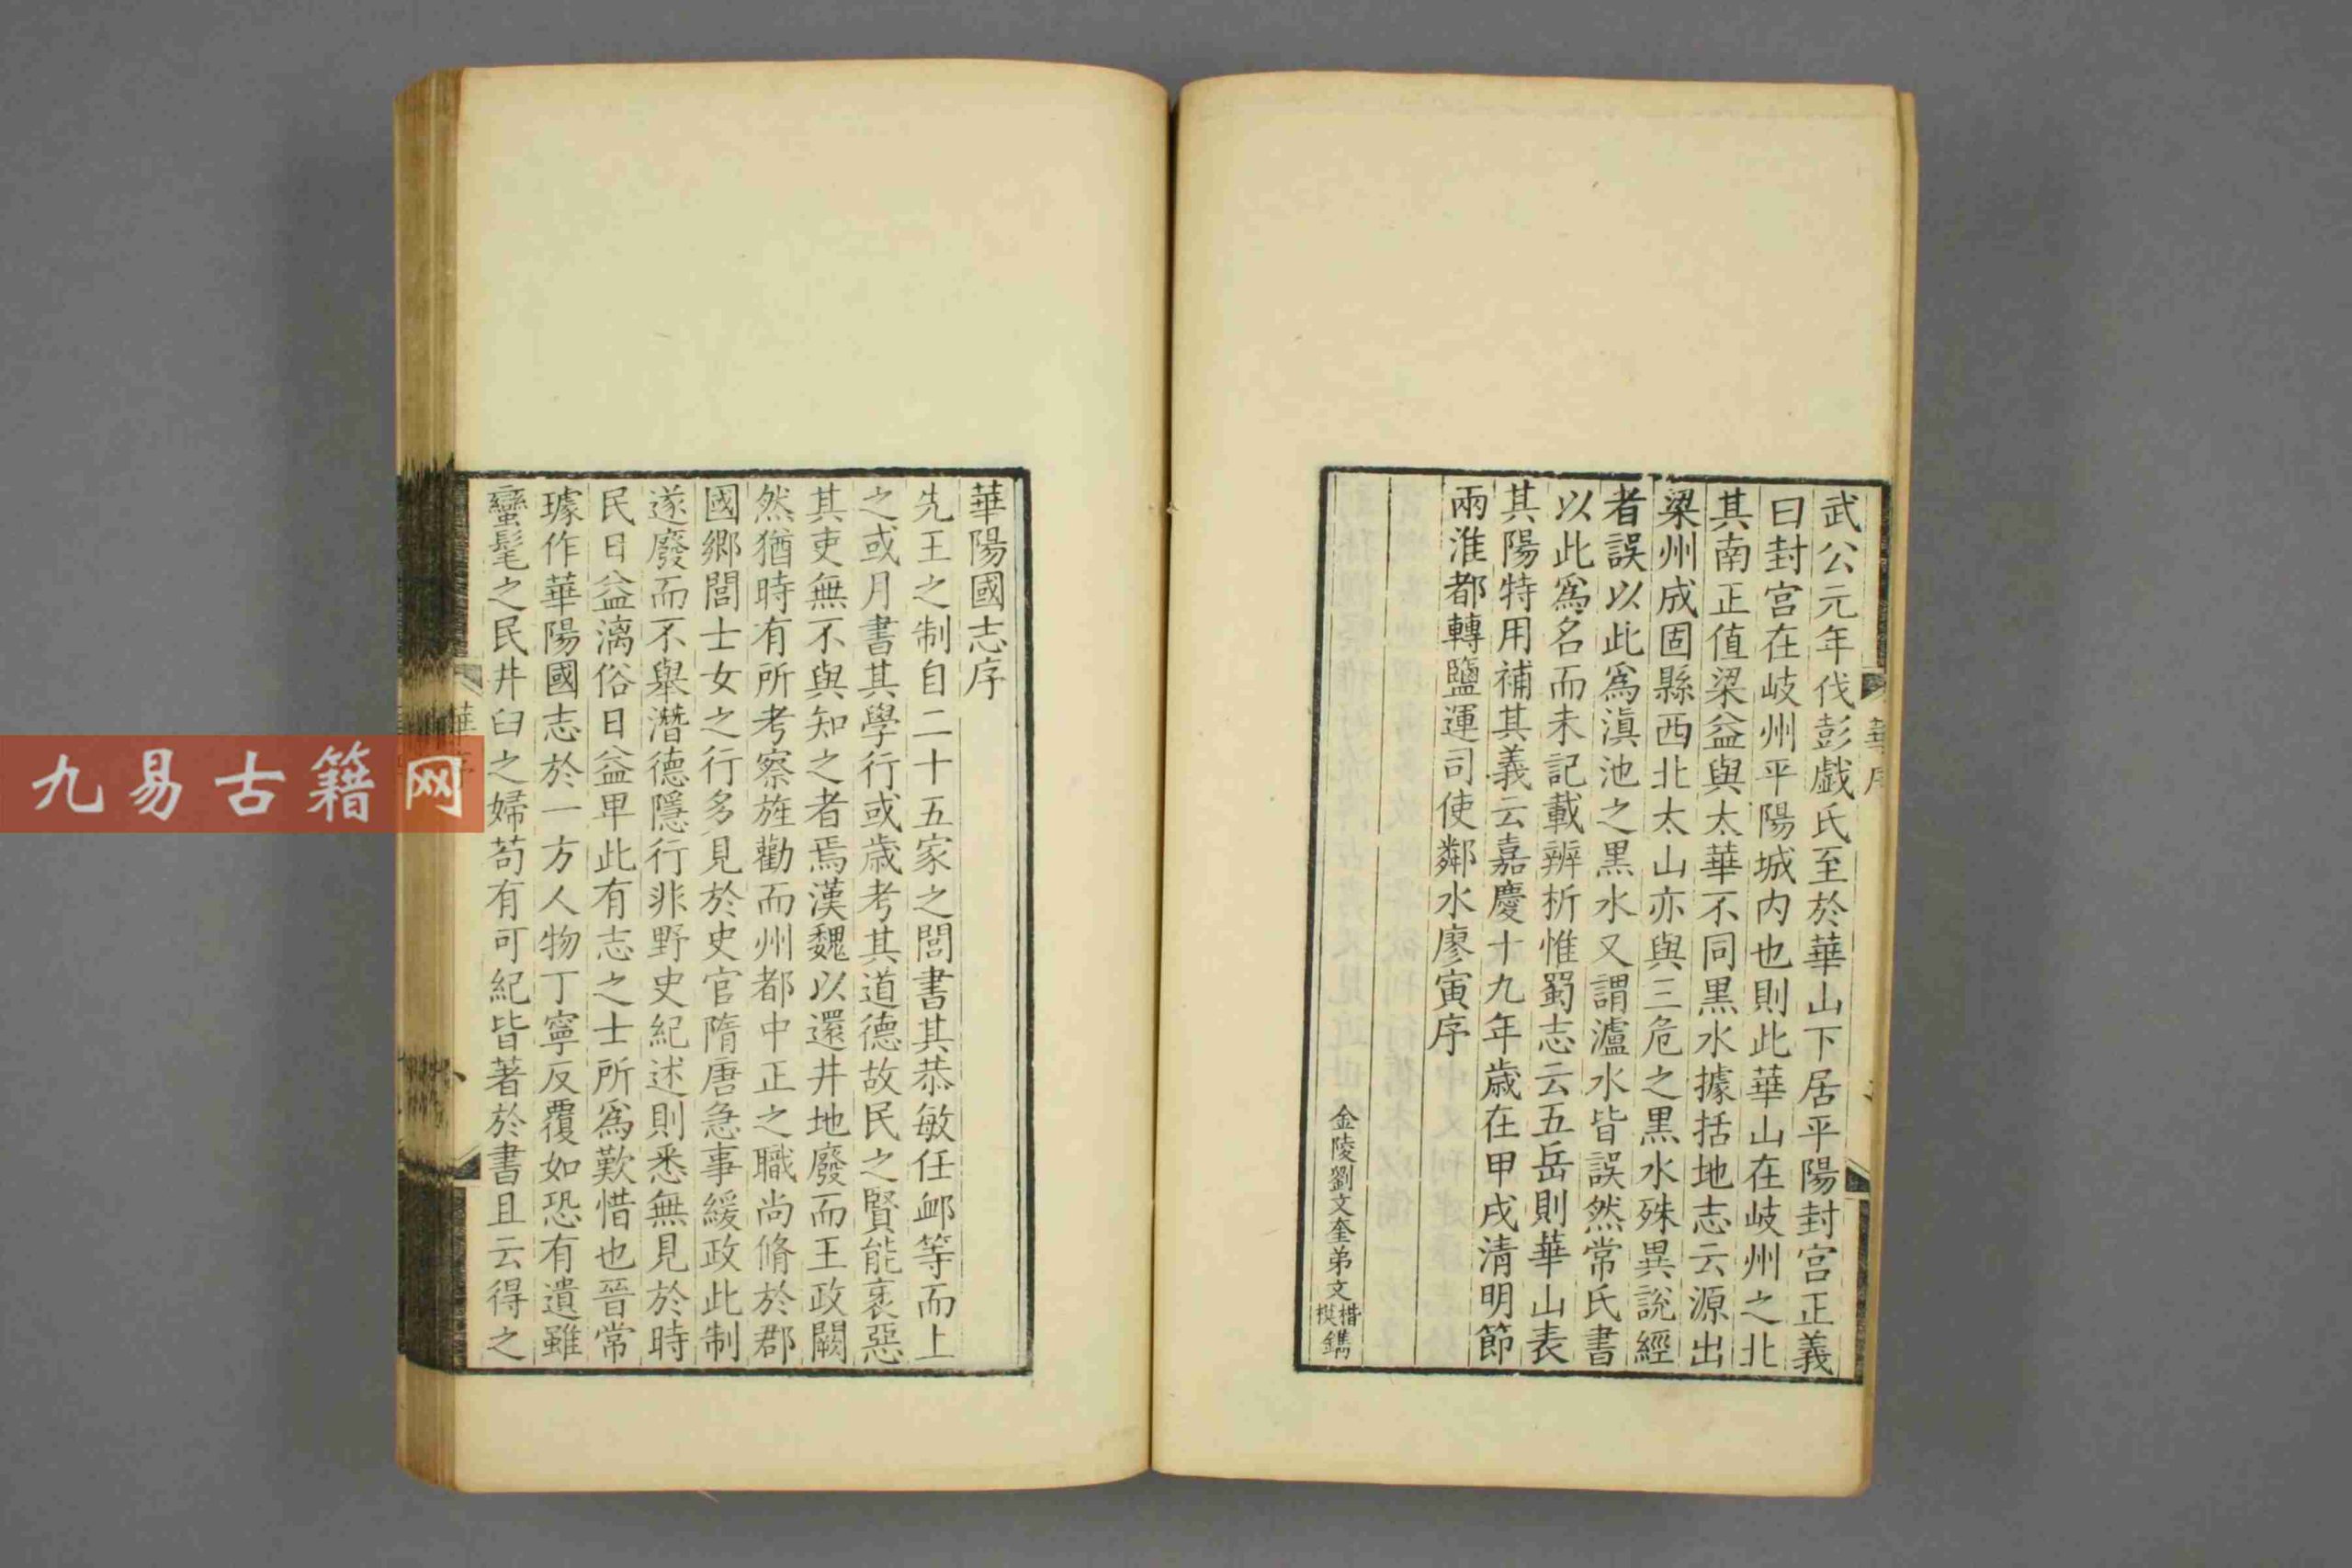 武公元年伐彭戲氏至於華山下居平陽封宮正義
曰封宮在岐州平陽城内也則此華山在岐州之北
其南正值梁益與太華不同黒水據括地志云源出
梁州成固縣西北太山亦與三危之黒水殊異說經
者誤以此爲滇池之黒水又謂瀘水皆誤然常氏書
以此爲名而未記載辨析惟蜀志云五岳則華山表
其陽特用補其義云嘉慶十九年歳在甲戌清明節
兩淮都轉鹽運司使鄰水廖寅序
金陵劉文奎弟文楷模鐫
華陽國志序
先王之制自二十五家之閭書其恭敏任卹等而上
之或月書其學行或歳考其道德故民之賢能衺惡
其吏無不與知之者焉漢魏以還井地廢而王政闕
然猶時有所考察旌勸而州都中正之職尚脩於郡
國鄉閭士女之行多見於史官隋唐急事緩政此制
遂廢而不舉潛德隱行非野史紀述則悉無見於時
民日益漓俗日益卑此有志之士所爲歎惜也晉常
璩作華陽國志於一方人物丁寧反覆如恐有遺雖
蠻髦之民井臼之婦苟有可紀皆著於書且云得之
九易古籍网